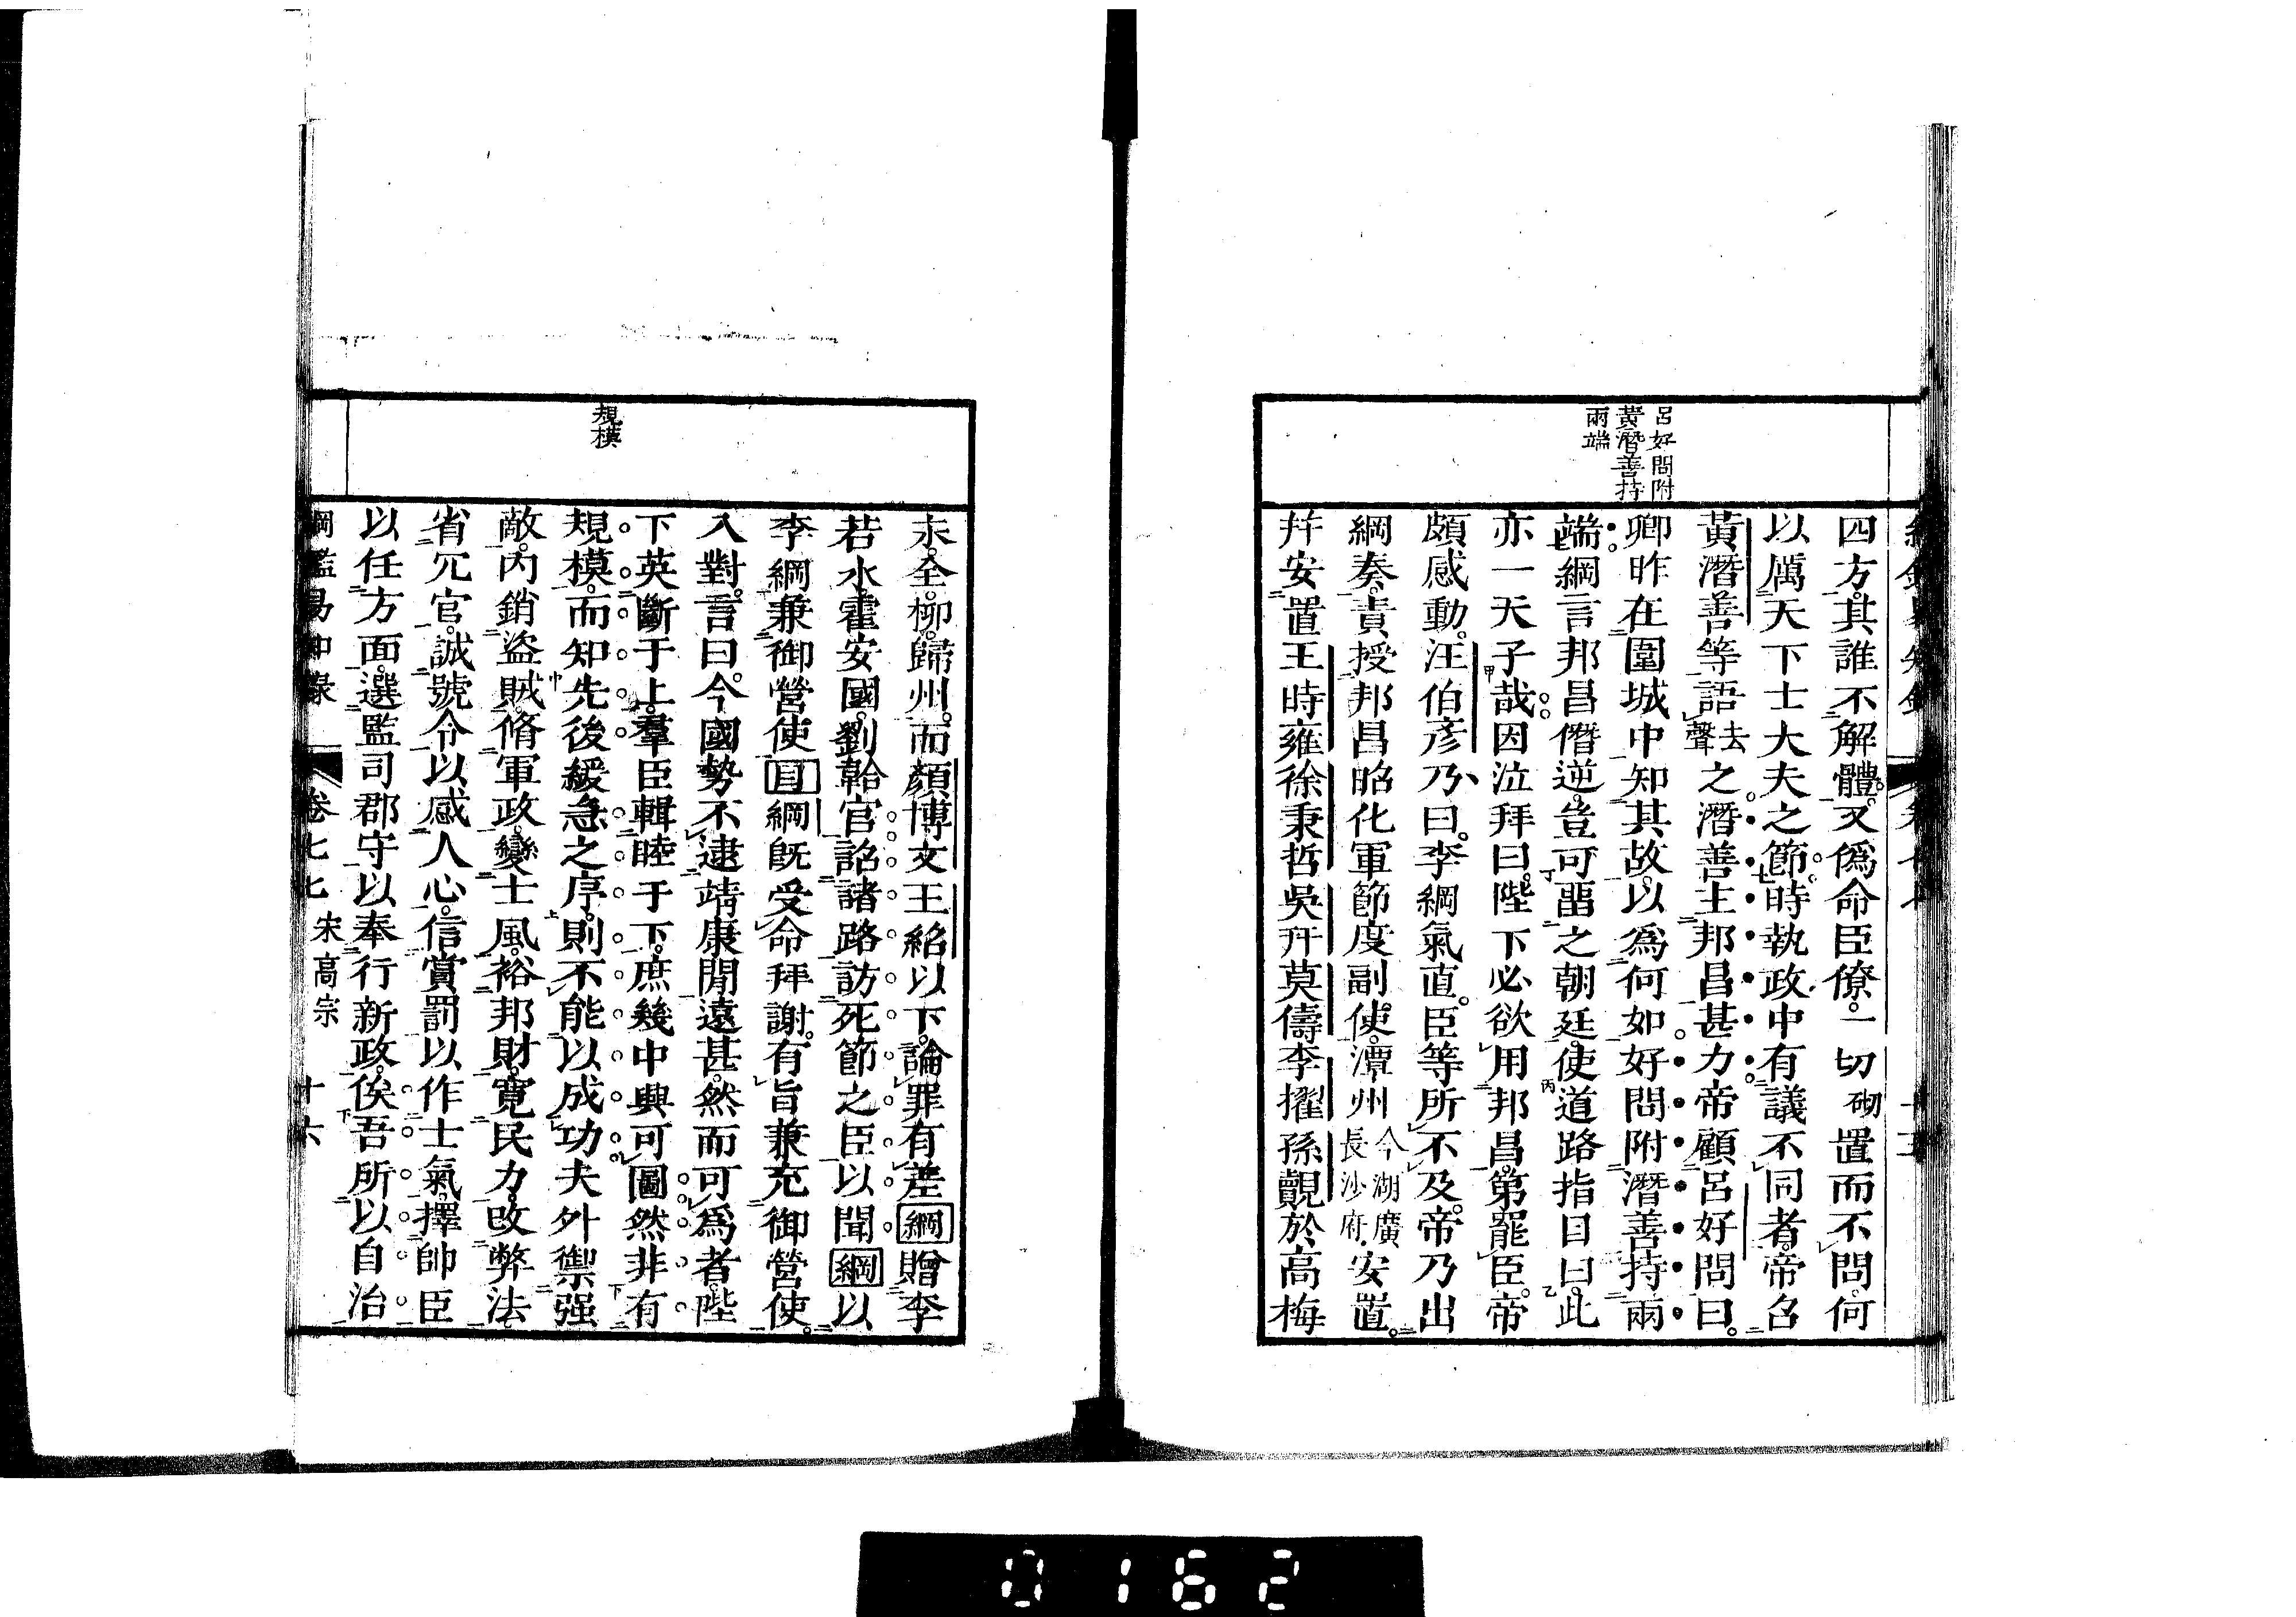 呂好問附
黃潛善持
兩端
四方。其誰不解體。又僞命臣僚。一切砌置而不問。何
以厲天下士大夫之節。時執政中有議不同者。帝召
黃潛善等語去聲之。潛善主邦昌甚力。帝顧呂好問曰。
卿昨在圍城中。知其故。以爲何如。好問附潛善持兩
端。綱言邦昌僭逆。豈可畱之朝廷。使道路指目曰。此
亦一天子哉。因泣拜曰。陛下必欲用邦昌。第罷臣。帝
頗感動。汪伯彥乃曰。李綱氣直。臣等所不及。帝乃出
綱奏。責授邦昌昭化軍節度副使。潭州今湖廣長沙府安置。
幷安置王時雍徐秉哲吳幵莫儔李擢孫覿於高梅
規模
永。全。柳。歸州。而顏博文王紹以下。論罪有差綱贈李
若水。霍安國。劉韐官。詔諸路訪死節之臣以聞綱以
李綱兼御營使目綱旣受命拜謝。有旨兼充御營使。
入對。言曰。今國勢不逮靖康閒遠甚。然而可爲者。陛
下英斷于上。羣臣輯睦于下。庶幾中興可圖然非有
規模。而知先後緩急之序。則不能以成功夫外禦强
敵。內銷盜賊。脩軍政。變士風。裕邦財。寬民力。改弊法
省冗官。誠號令以感人心。信賞罰以作士氣。擇帥臣
以任方面。選監司郡守以奉行新政。俟吾所以自治
綱鑑易知錄 卷七七 宋高宗 十六
0162